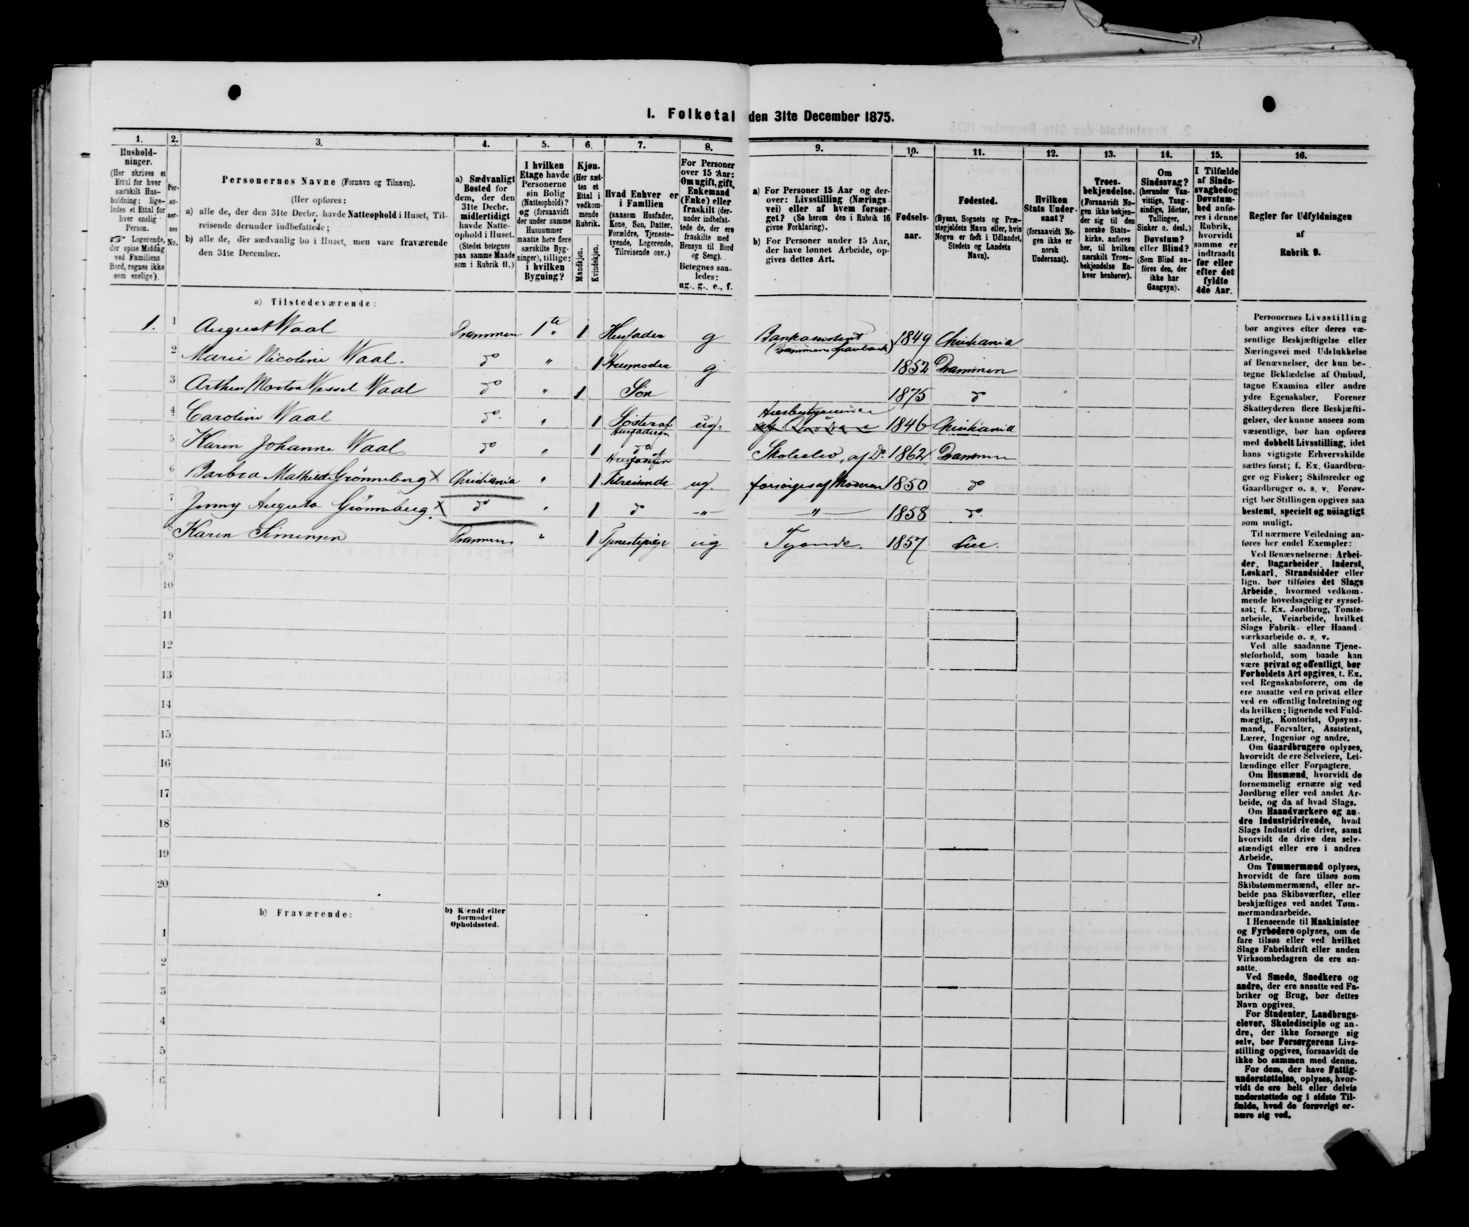 I. Folketal den 31te December 1875.
1.
2.
3.
4.
5.
6.
7.
8.
9.
10.
11.
12.
13.
14.
15.
16.
Hushold-
ninger.
(Her skrives et
Ettal for hver
særskilt Hus-
holdning; lige-
ledes et Ettal for
hver enslig
Person.
Logerende,
der spise Middag
ved Familiens
Bord, regnes ikke
som enslige).
Per-
so-
ner-
nes
No.
Personernes Navne (Fornavn og Tilnavn).
(Her opføres:
a) alle de, der den 31te Decbr. havde Natteophold i Huset, Til-
reisende derunder indbefattede;
b) alle de, der sædvanlig bo i Huset, men vare fraværende
den 31te December.
a) Sædvanligt
Bosted for
dem, der den
31te Decbr.
midlertidigt
havde Natte-
ophold i Huset.
(Stedet betegnes
paa samme Maade
som i Rubrik 11.)
I hvilken
Etage havde
Personerne
sin Bolig
(Natteophold)?
og (forsaavidt
der under samme
Husnummer
maatte høre flere
særskilte Byg-
ninger), tillige:
i hvilken
Bygning?
Kjøn.
(Her sæt-
tes et
Ettal i
vedkom-
mende
Rubrik.
Mandkjøn.
Kvindekjøn.
Hvad Enhver er
i Familien
(saasom Husfader,
Kone, Søn, Datter,
Forældre, Tjeneste-
tyende, Logerende,
Tilreisende osv.)
For Personer
over 15 Aar:
Om ugift, gift,
Enkemand
(Enke) eller
fraskilt (der-
under indbefat-
tede de, der ere
fraskilte med
Hensyn til Bord
og Seng).
Betegnes saa-
ledes:
ug., g., e., f.
a) For Personer 15 Aar og der-
over: Livsstilling (Nærings-
vei) eller af hvem forsør-
get? (Se herom den i Rubrik 16
givne Forklaring).
b) For Personer under 15 Aar,
der have lønnet Arbeide, op-
gives dettes Art.
Fødsels-
aar.
Fødested.
(Byens, Sognets og Præ-
stegjeldets Navn eller, hvis
Nogen er født i Udlandet,
Stedets og Landets
Navn).
Hvilken
Stats Under-
saat?
(forsaavidt No-
gen ikke er
norsk
Undersaat).
Troes-
bekjendelse.
(Forsaavidt No-
gen ikke bekjen-
der sig til den
norske Stats-
kirke, anføres
her, til hvilken
særskilt Troes-
bekjendelse En-
hver henhører).
Om
Sindssvag?
(herunder Van-
vittige, Tung-
sindige, Idioter,
Tullinger,
Sinker o. desl.)
Døvstum?
eller Blind?
(Som Blind an-
føres den, der
ikke har
Gangsyn).
I Tilfælde
af Sinds-
svaghed og
Døvstum-
hed anfø-
res i denne
Rubrik,
hvorvidt
samme er
indtraadt
før eller
efter det
fyldte
4de Aar.
Regler for Udfyldningen
af
Rubrik 9.
a) Tilstedeværende:
1. 1 August Waal Drammen 1te 1 Husfader g Bankassistent (Drammens Sparebank) 1849 Christiania
2 Marie Nicoline Waal. do " 1 Husmoder g 1852 Drammen
3 Arthur Morten Wessel Waal do " 1 Søn 1875 do
4 Caroline Waal do " 1 Søster af Husfaderen ug. 1846 Christiania
5 Karen Johanne Waal do " 1 do Husfaderen Skoleelev, af Do 1862 Drammen
6 Barbra Mathilde Grønneberg x Christiania " 1 Tilreisende ug. forsørges af Moderen 1850 do
7 Jenny Augusta Grønneberg. x do " 1 do — " — — " — 1858 do
8 Karen Simensen Drammen " 1 Tjenestepige ug Tyende. 1857 Lier.
9
10
11
12
13
14
15
16
17
18
19
20
b) Fraværende:
b) Kjendt eller
formodet
Opholdssted.
1
2
3
4
5
6
Personernes Livsstilling
bør angives efter deres væ-
sentlige Beskjæftigelse eller
Næringsvei med Udelukkelse
af Benævnelser, der kun be-
tegne Beklædelse af Ombud,
tagne Examina eller andre
ydre Egenskaber. Forener
Skatteyderen flere Beskjæfti-
gelser, der kunne ansees som
væsentlige, bør han opføres
med dobbelt Livsstilling, idet
hans vigtigste Erhvervskilde
sættes først; f. Ex. Gaardbru-
ger og Fisker; Skibsreder og
Gaardbruger o. s. v. Forøv-
rigt bør Stillingen opgives saa
bestemt, specielt og nøiagtigt
som muligt.
Til nærmere Veiledning an-
føres her endel Exempler:
Ved Benævnelserne: Arbei-
der, Dagarbeider, Inderst,
Løskarl, Strandsidder eller
lign. bør tilføies det Slags
Arbeide, hvormed vedkom-
mende hovedsagelig er syssel-
sat; f. Ex. Jordbrug, Tomte-
arbeide, Veiarbeide, hvilket
Slags Fabrik- eller Haand-
værksarbeide o. s. v.
Ved alle saadanne Tjene-
steforhold, som baade kan
være privat og offentligt, bør
Forholdets Art opgives, t. Ex.
ved Regnskabsførere, om de
ere ansatte ved en privat eller
ved en offentlig Indretning og
da hvilken; lignende ved Fuld-
mægtig, Kontorist, Opsyns-
mand, Forvalter, Assistent,
Lærer, Ingeniør og andre.
Om Gaardbrugere oplyses,
hvorvidt de ere Selveiere, Lei-
lændinge eller Forpagtere.
Om Husmænd, hvorvidt de
fornemmelig ernære sig ved
Jordbrug eller ved andet Ar-
beide, og da af hvad Slags.
Om Haandværkere og an-
dre Industridrivende, hvad
Slags Industri de drive, samt
hvorvidt de drive den selv-
stændigt eller ere i andres
Arbeide.
Om Tømmermænd oplyses,
hvorvidt de fare tilsøs som
Skibstømmermænd, eller ar-
beide paa Skibsværfter, eller
beskjæftiges ved andet Tøm-
mermandsarbeide.
I Henseende til Maskinister
og Fyrbødere oplyses, om de
fare tilsøs eller ved hvilket
Slags Fabrikdrift eller anden
Virksomhedsgren de ere an-
satte.
Ved Smede, Snedkere og
andre, der ere ansatte ved Fa-
briker og Brug, bør dettes
Navn opgives.
For Studenter, Landbrugs-
elever, Skoledisciple og an-
dre, der ikke forsørge sig
selv, bør Forsørgerens Livs-
stilling opgives, forsaavidt de
ikke bo sammen med denne.
For dem, der have Fattig-
understøttelse, oplyses, hvor-
vidt de ere helt eller delvis
understøttede og i sidste Til-
fælde, hvad de forøvrigt er-
nære sig ved.